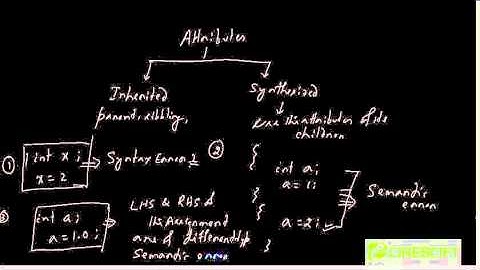 Attributes
Inherited
parent, sibling,
Synthesized
use the attributes of its
children
① int x ;
x = 2
⇒ Syntax Error 1
②
{
{
int a;
a = 1;
}
a = 2;
}
Semantic
error
③ int a;
a = 1.0 ;
⇒ LHS & RHS of
the Assignment
are of different type
Semantic error